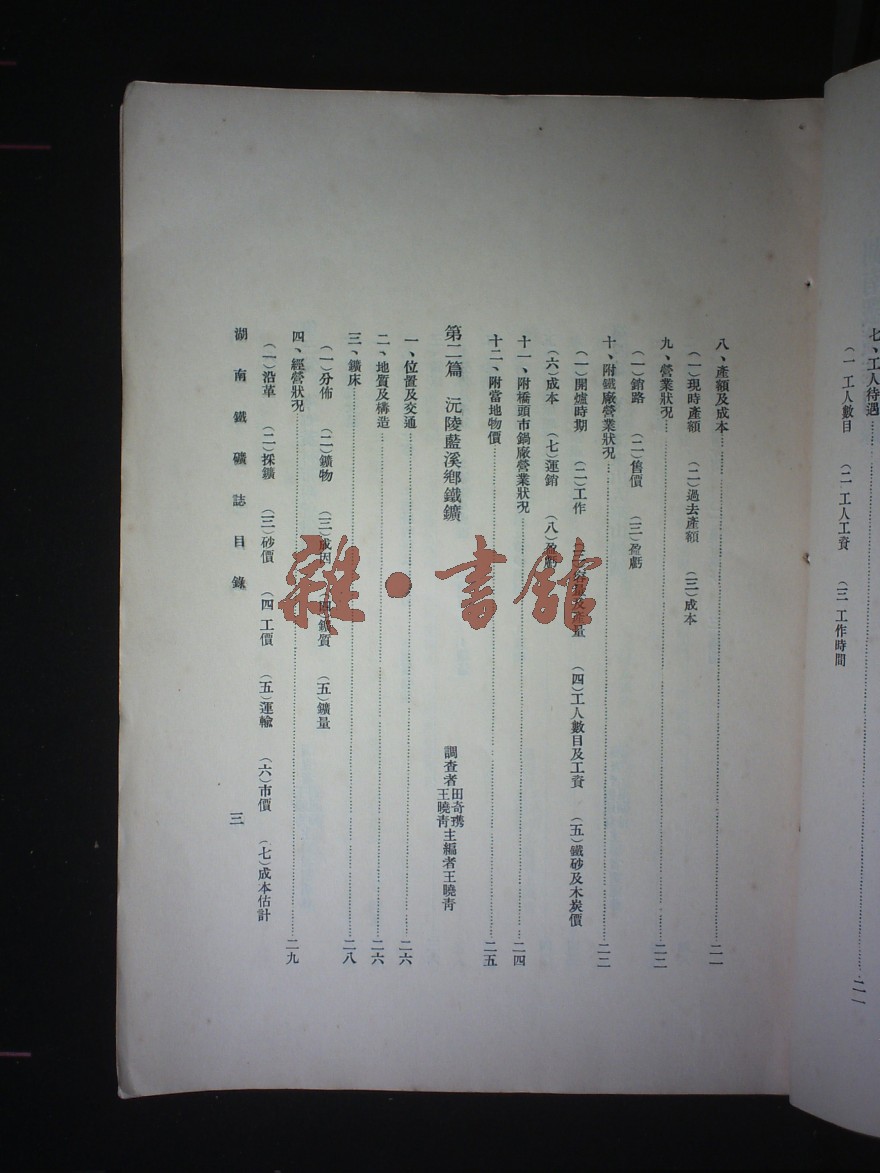 七、工人待遇……二一
（一）工人數目　（二）工人工資　（三）工作時間
八、產額及成本……二一
（一）現時產額　（二）過去產額　（三）成本
九、營業狀況……二二
（一）銷路　（二）售價　（三）盈虧
十、附鐵廠營業狀況……二二
（一）開爐時期　（二）工作　（三）容量及產量　（四）工人數目及工資　（五）鐵砂及木炭價
（六）成本　（七）運銷　（八）盈虧
十一、附橋頭市鍋廠營業狀況……二四
十二、附當地物價……二五
第二篇　沅陵藍溪鄉鐵鑛
調查者田奇㻪王曉青主編者王曉青
一、位置及交通……二六
二、地質及構造……二六
三、鑛床……二八
（一）分佈　（二）鑛物　（三）成因　（四）鑛質　（五）鑛量
四、經營狀況……二九
（一）沿革　（二）採鑛　（三）砂價　（四）工價　（五）運輸　（六）市價　（七）成本估計
湖南鐵礦誌目錄　三
雜·書館